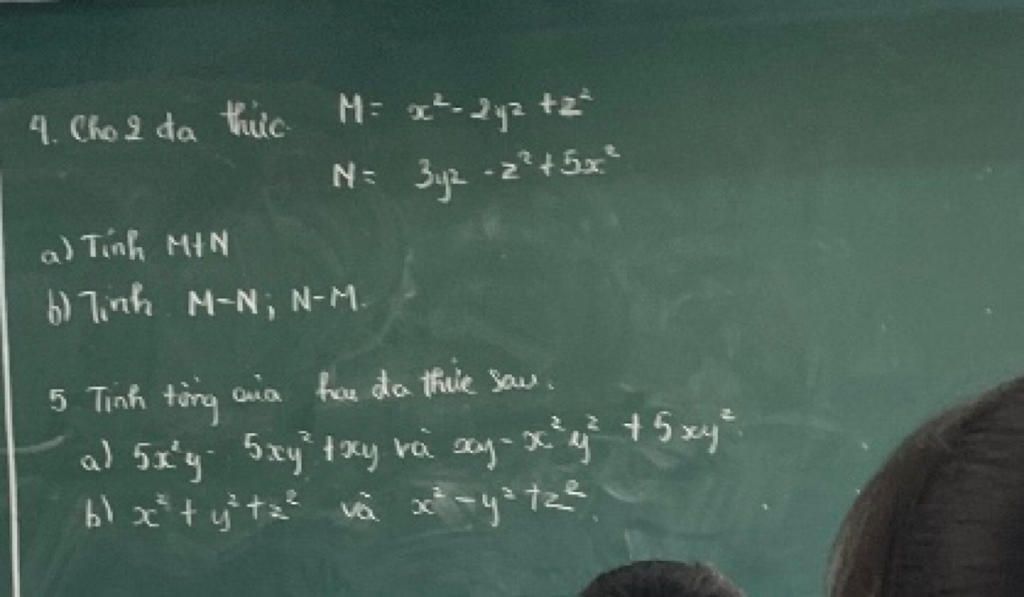 4. Cho 2 đa thức M = x² - 2yz + z²
N = 3yz - z² + 5x²
a) Tính M+N
b) Tính M-N; N-M.
5 Tính tổng của hai đa thức sau.
a) 5x²y - 5xy² + xy và xy - x²y² + 5xy²
b) x² + y² + z² và x² - y² + z².